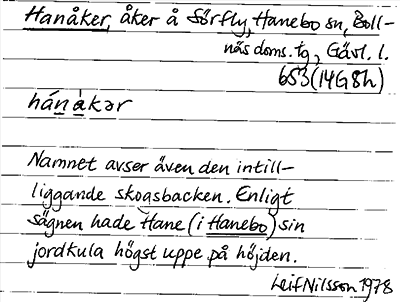 Hanåker, åker å Sörfly, Hanebo sn, Boll-
näs doms. tg, Gävl. l.
653(14G8h)
hánàkər
Namnet avser även den intill-
liggande skogsbacken. Enligt
sägnen hade Hane (i Hanebo) sin
jordkula högst uppe på höjden.
Leif Nilsson 1978